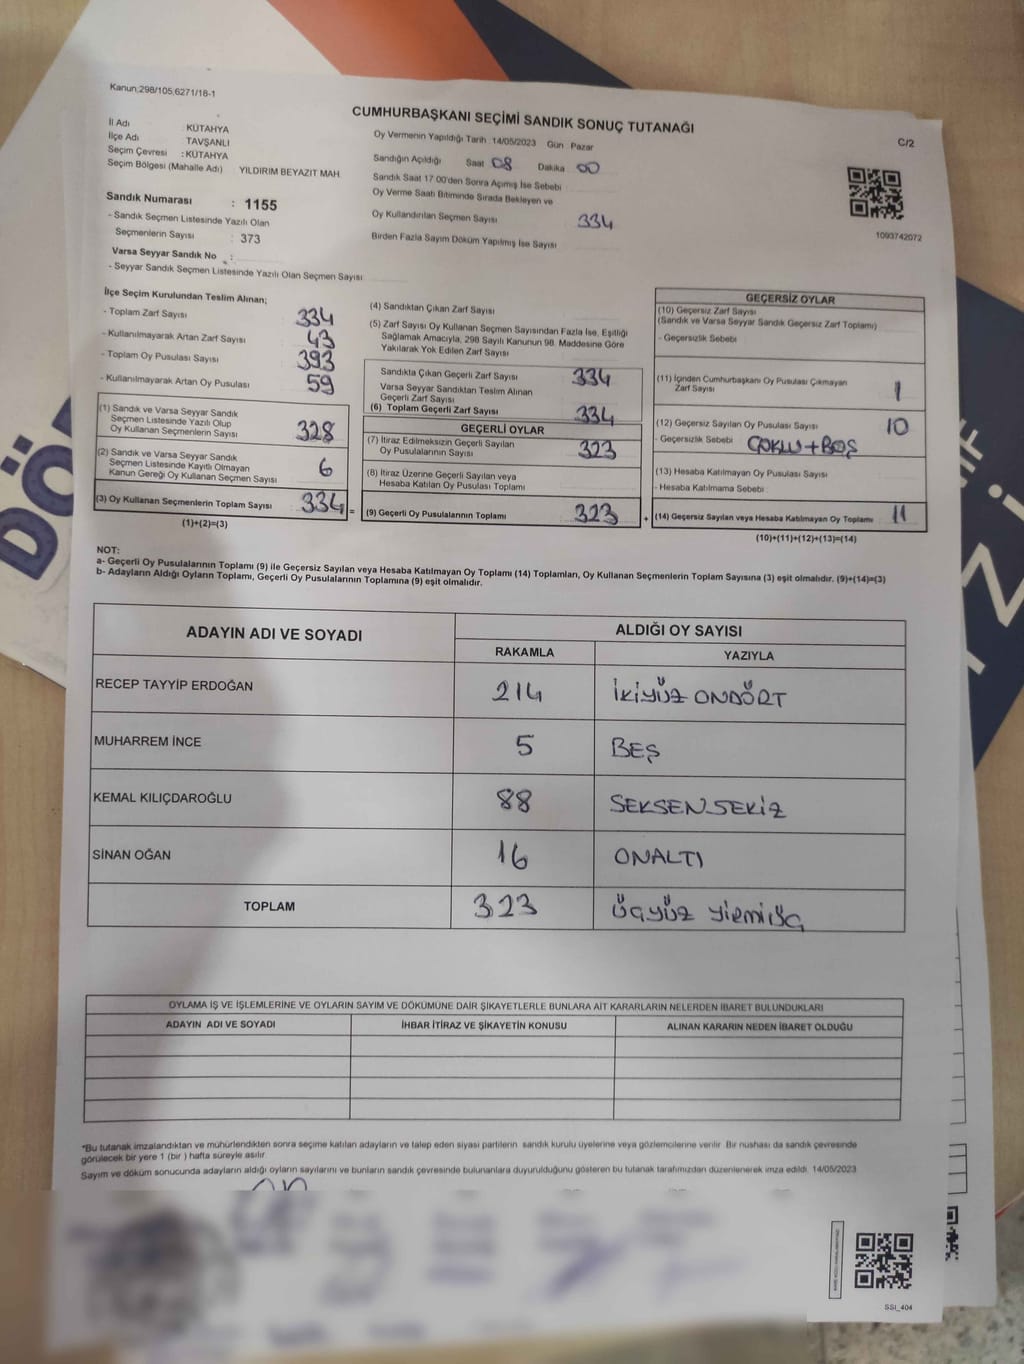 Kanun;298/105,6271/18-1
CUMHURBAŞKANI SEÇİMİ SANDIK SONUÇ TUTANAĞI
C/2
İl Adı : KÜTAHYA
İlçe Adı TAVŞANLI
Seçim Çevresi : KÜTAHYA
Seçim Bölgesi (Mahalle Adı) YILDIRIM BEYAZIT MAH.
Sandık Numarası : 1155
- Sandık Seçmen Listesinde Yazılı Olan
Seçmenlerin Sayısı : 373
Varsa Seyyar Sandık No :
- Seyyar Sandık Seçmen Listesinde Yazılı Olan Seçmen Sayısı
Oy Vermenin Yapıldığı Tarih 14/05/2023 Gün Pazar
Sandığın Açıldığı Saat 08 Dakika 00
Sandık Saat 17.00'den Sonra Açımış İse Sebebi
Oy Verme Saati Bitiminde Sırada Bekleyen ve
Oy Kullandırılan Seçmen Sayısı 334
Birden Fazla Sayım Döküm Yapılmış İse Sayısı
1093742072
İlçe Seçim Kurulundan Teslim Alınan;
- Toplam Zarf Sayısı 334
- Kullanılmayarak Artan Zarf Sayısı 43
- Toplam Oy Pusulası Sayısı 393
- Kullanılmayarak Artan Oy Pusulası 59
(1) Sandık ve Varsa Seyyar Sandık
Seçmen Listesinde Yazılı Olup
Oy Kullanan Seçmenlerin Sayısı 328
(2) Sandık ve Varsa Seyyar Sandık
Seçmen Listesinde Kayıtlı Olmayan
Kanun Gereği Oy Kullanan Seçmen Sayısı 6
(3) Oy Kullanan Seçmenlerin Toplam Sayısı 334 =
(1)+(2)=(3)
(4) Sandıktan Çıkan Zarf Sayısı
(5) Zarf Sayısı Oy Kullanan Seçmen Sayısından Fazla İse, Eşitliği
Sağlamak Amacıyla, 298 Sayılı Kanunun 98. Maddesine Göre
Yakılarak Yok Edilen Zarf Sayısı
Sandıkta Çıkan Geçerli Zarf Sayısı 334
Varsa Seyyar Sandıktan Teslim Alınan
Geçerli Zarf Sayısı
(6) Toplam Geçerli Zarf Sayısı 334
GEÇERLİ OYLAR
(7) İtiraz Edilmeksizin Geçerli Sayılan
Oy Pusulalarının Sayısı 323
(8) İtiraz Üzerine Geçerli Sayılan veya
Hesaba Katılan Oy Pusulası Toplamı
(9) Geçerli Oy Pusulalarının Toplamı 323 +
GEÇERSİZ OYLAR
(10) Geçersiz Zarf Sayısı
(Sandık ve Varsa Seyyar Sandık Geçersiz Zarf Toplamı)
- Geçersizlik Sebebi
(11) İçinden Cumhurbaşkanı Oy Pusulası Çıkmayan
Zarf Sayısı 1
(12) Geçersiz Sayılan Oy Pusulası Sayısı 10
- Geçersizlik Sebebi ÇOKLU+BOŞ
(13) Hesaba Katılmayan Oy Pusulası Sayısı
- Hesaba Katılmama Sebebi
(14) Geçersiz Sayılan veya Hesaba Katılmayan Oy Toplamı 11
(10)+(11)+(12)+(13)=(14)
NOT:
a- Geçerli Oy Pusulalarının Toplamı (9) ile Geçersiz Sayılan veya Hesaba Katılmayan Oy Toplamı (14) Toplamları, Oy Kullanan Seçmenlerin Toplam Sayısına (3) eşit olmalıdır. (9)+(14)=(3)
b- Adayların Aldığı Oyların Toplamı, Geçerli Oy Pusulalarının Toplamına (9) eşit olmalıdır.
ADAYIN ADI VE SOYADI ALDIĞI OY SAYISI
RAKAMLA YAZIYLA
RECEP TAYYİP ERDOĞAN 214 İKİYÜZ ONDÖRT
MUHARREM İNCE 5 BEŞ
KEMAL KILIÇDAROĞLU 88 SEKSENSEKİZ
SİNAN OĞAN 16 ONALTI
TOPLAM 323 ÜÇYÜZ YİRMİÜÇ
OYLAMA İŞ VE İŞLEMLERİNE VE OYLARIN SAYIM VE DÖKÜMÜNE DAİR ŞİKAYETLERLE BUNLARA AİT KARARLARIN NELERDEN İBARET BULUNDUKLARI
ADAYIN ADI VE SOYADI İHBAR İTİRAZ VE ŞİKAYETİN KONUSU ALINAN KARARIN NEDEN İBARET OLDUĞU
*Bu tutanak imzalandıktan ve mühürlendikten sonra seçime katılan adayların ve talep eden siyasi partilerin sandık kurulu üyelerine veya gözlemcilerine verilir. Bir nüshası da sandık çevresinde
görülecek bir yere 1 (bir ) hafta süreyle asılır.
Sayım ve döküm sonucunda adayların aldığı oyların sayılarını ve bunların sandık çevresinde bulunanlara duyurulduğunu gösteren bu tutanak tarafımızdan düzenlenerek imza edildi. 14/05/2023
SSI_404